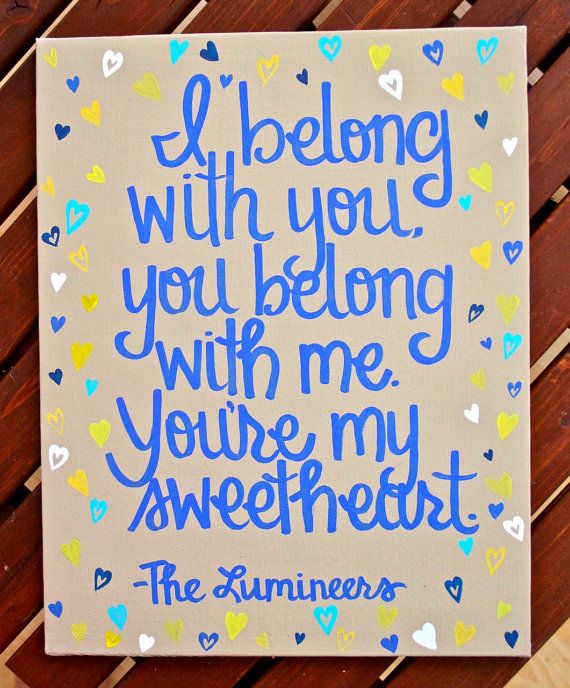 I belong
with you,
you belong
with me.
You're my
sweetheart.
-The Lumineers